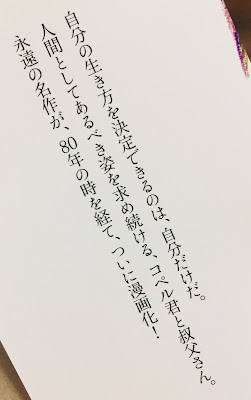 自分の生き方を決定できるのは、自分だけだ。
人間としてあるべき姿を求め続ける、コペル君と叔父さん。
永遠の名作が、80年の時を経て、ついに漫画化！